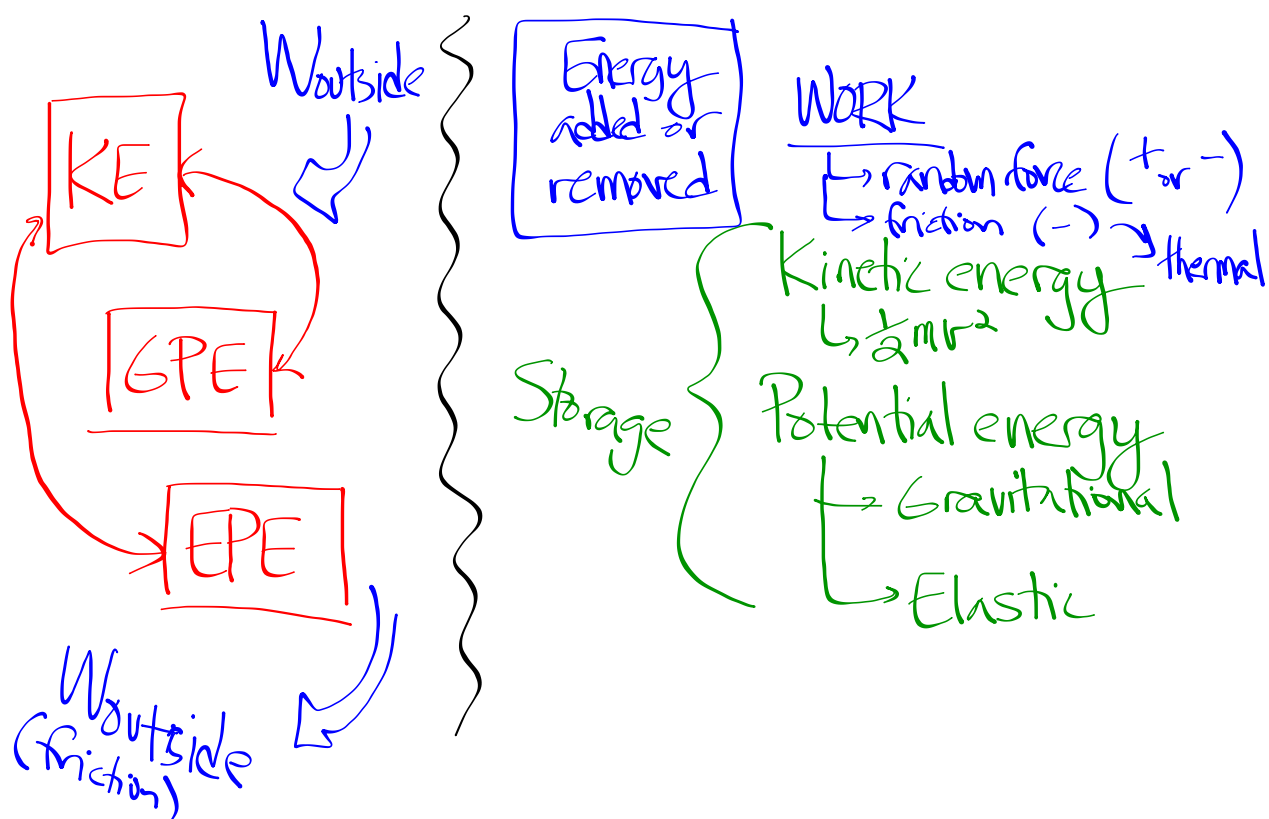 Woutside
KE
GPE
EPE
Woutside
(friction)
Energy
added or
removed
WORK
random force (+ or -)
friction (-)
thermal
Kinetic energy
½mv²
Storage
Potential energy
Gravitational
Elastic